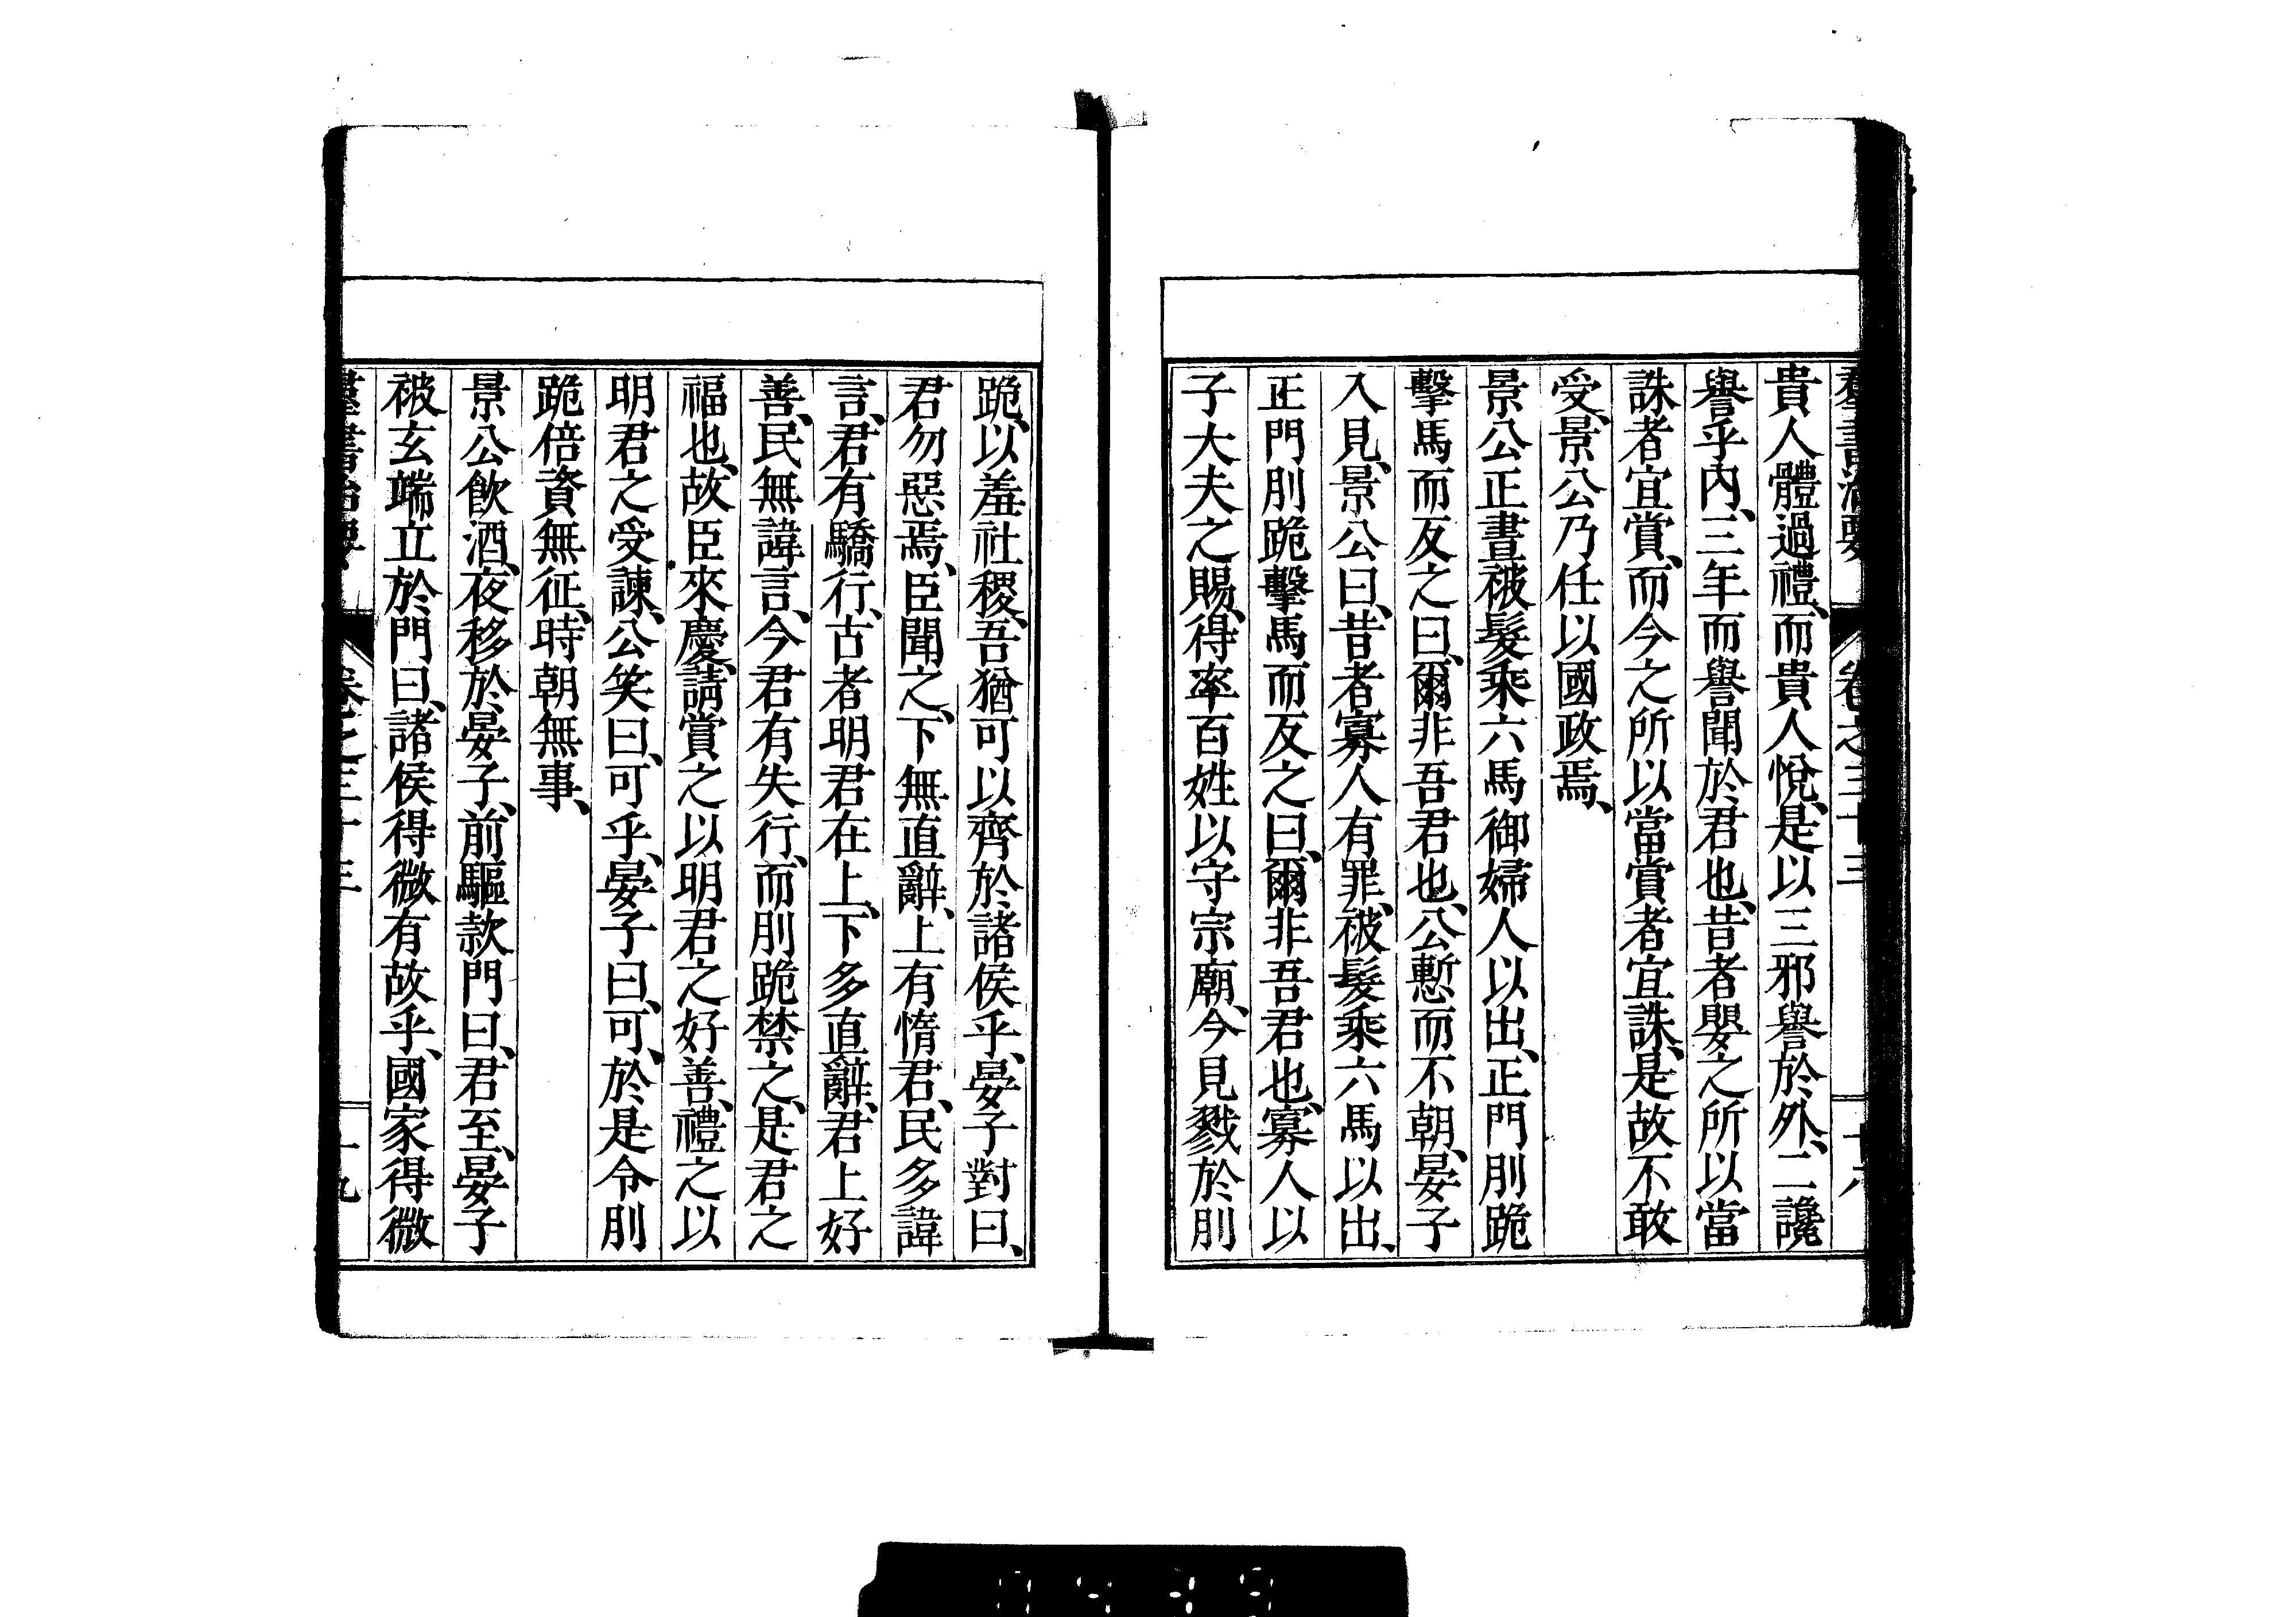 羣書治要 卷之三十三 十八
貴人體過禮、而貴人悅、是以三邪譽於外、二讒
譽乎內、三年而譽聞於君也、昔者嬰之所以當
誅者宜賞、而今之所以當賞者宜誅、是故不敢
受、景公乃任以國政焉、
景公正晝被髮乘六馬御婦人以出、正門刖跪
擊馬而反之曰、爾非吾君也、公慙而不朝、晏子
入見、景公曰、昔者寡人有罪、被髮乘六馬以出、
正門刖跪擊馬而反之曰、爾非吾君也、寡人以
子大夫之賜、得率百姓以守宗廟、今見戮於刖
跪、以羞社稷、吾猶可以齊於諸侯乎、晏子對曰、
君勿惡焉、臣聞之、下無直辭、上有惰君、民多諱
言、君有驕行、古者明君在上、下多直辭、君上好
善、民無諱言、今君有失行、而刖跪禁之、是君之
福也、故臣來慶、請賞之以明君之好善、禮之以
明君之受諫、公笑曰、可乎、晏子曰、可、於是令刖
跪倍資無征、時朝無事、
景公飲酒、夜移於晏子、前驅款門曰、君至、晏子
被玄端立於門曰、諸侯得微有故乎、國家得微
羣書治要 卷之三十三 十九